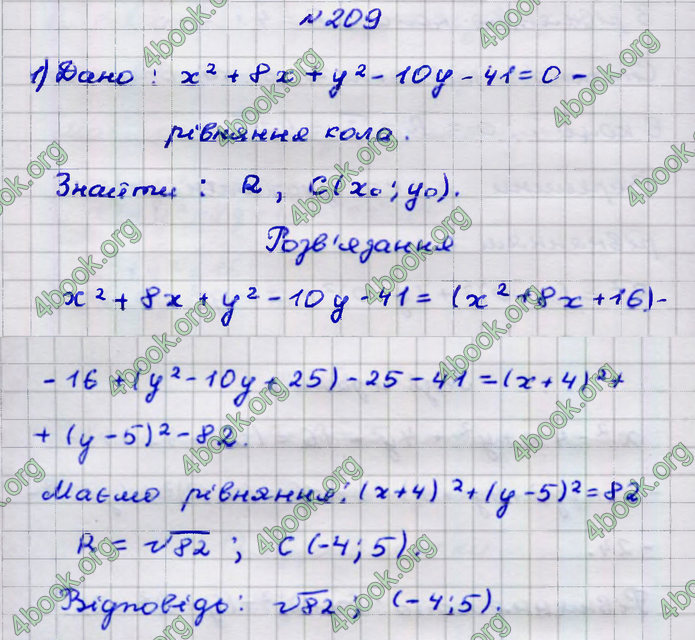 №209
1) Дано: x² + 8x + y² - 10y - 41 = 0 -
рівняння кола.
Знайти: R, C(x₀; y₀).
Розв'язання
x² + 8x + y² - 10y - 41 = (x² + 8x + 16) -
- 16 + (y² - 10y + 25) - 25 - 41 = (x + 4)² +
+ (y - 5)² - 82.
Маємо рівняння: (x+4)² + (y-5)² = 82
R = √82; C(-4; 5).
Відповідь: √82; (-4; 5).
4book.org